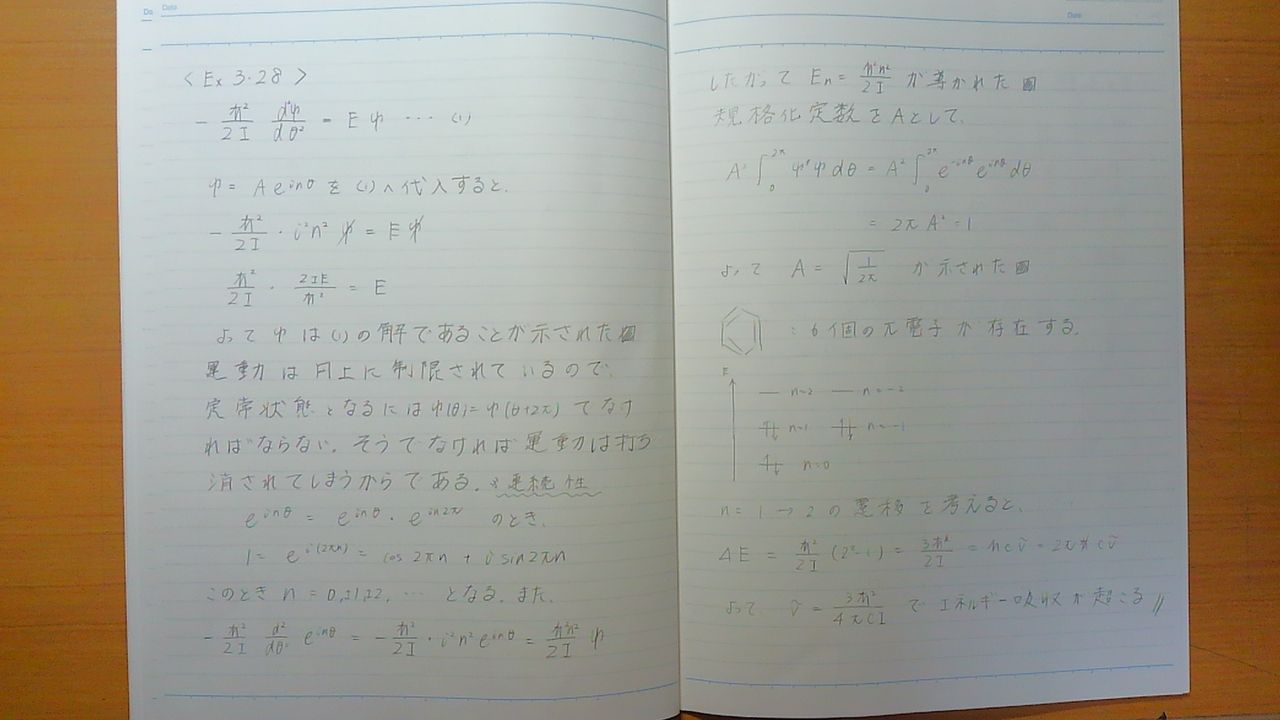 Date
〈Ex 3・28〉
- ℏ²/2I d²ψ/dθ² = Eψ ・・・ (1)
ψ = Ae^{inθ} を (1) へ代入すると、
- ℏ²/2I ・ i²n² ψ = E ψ
ℏ²/2I ・ 2IE/ℏ² = E
よって ψ は (1) の解であることが示された
運動は円上に制限されているので、
定常状態となるにはψ(θ)=ψ(θ+2π) でなけ
ればならない。そうでなければ運動は打ち
消されてしまうからである。 連続性
e^{inθ} = e^{inθ}・e^{in2π} のとき、
1 = e^{i(2πn)} = cos 2πn + i sin 2πn
このとき n = 0,±1,±2, … となる。また、
- ℏ²/2I d²/dθ² e^{inθ} = - ℏ²/2I ・ i²n² e^{inθ} = ℏ²n²/2I ψ
Date
したがって En = ℏ²n²/2I が導かれた
規格化定数をAとして、
A² ∫₀^{2π} ψ*ψ dθ = A² ∫₀^{2π} e^{-inθ} e^{inθ} dθ
= 2π A² = 1
よって A = √(1/2π) が示された
: 6個のπ電子が存在する。
E
n=2 n=-2
n=1 n=-1
n=0
n = 1 → 2 の遷移を考えると、
ΔE = ℏ²/2I (2²-1) = 3ℏ²/2I = hcν̃ = 2πℏcν̃
よって ν̃ = 3ℏ/4πcI でエネルギー吸収が起こる //